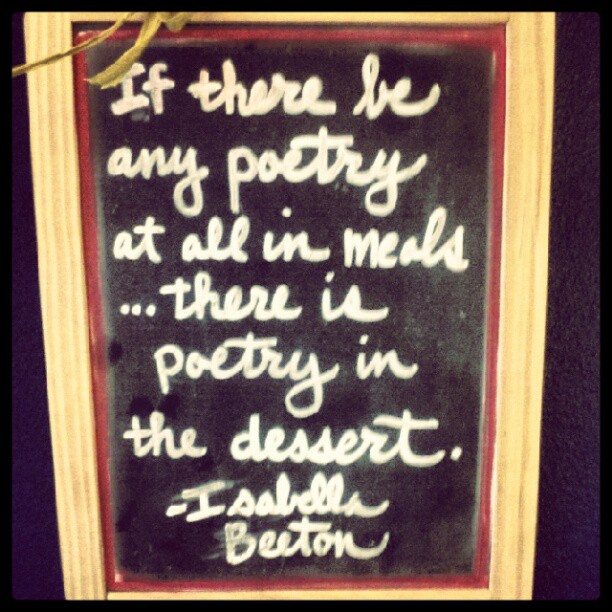 If there be
any poetry
at all in meals
...there is
poetry in
the dessert.
-Isabella
Beeton